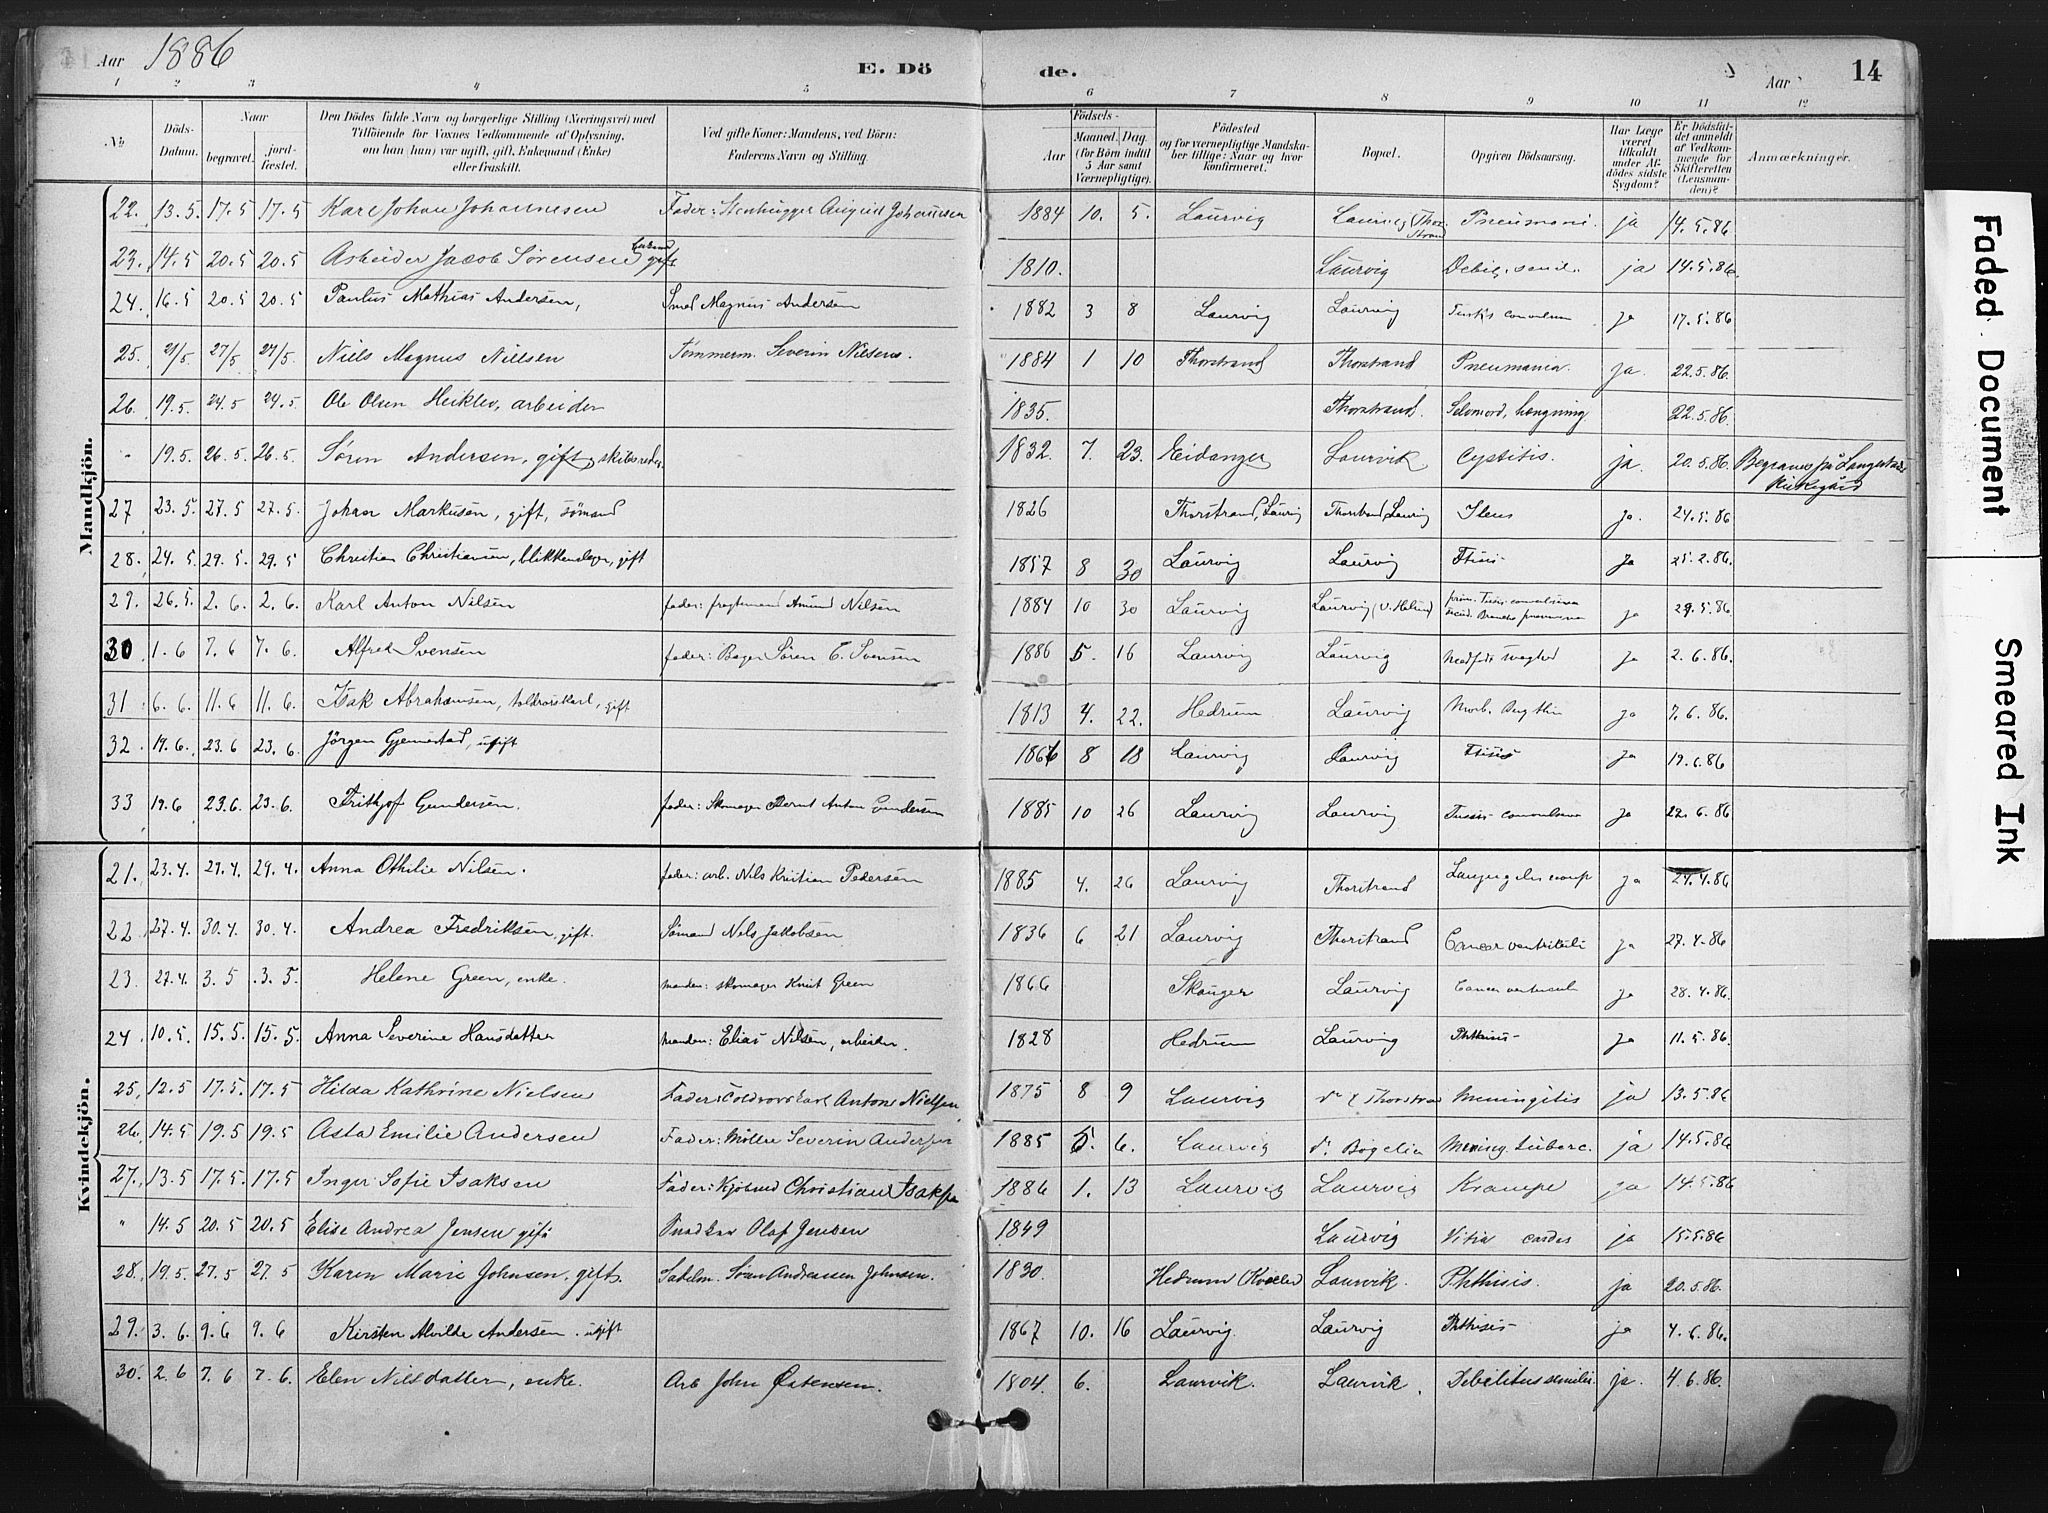 Aar 1886
E. Döde.
Aar
14
1 2 3 4 5 6 7 8 9 10 11 12
No
Döds-Datum.
Naar
begravet.
jordfæstet.
Den Dödes fulde Navn og borgerlige Stilling (Næringsvei) med
Tilföiende for Voxnes Vedkommende af Oplysning,
om han (hun) var ugift, gift, Enkemand (Enke)
eller fraskilt.
Ved gifte Koner: Mandens, ved Börn:
Faderens Navn og Stilling.
Födsels-
Aar
Maaned. Dag.
(for Börn indtil
5 Aar samt
Værnepligtige).
Födested
og for værnepligtige Mandskaber tillige: Naar og hvor
konfirmeret.
Bopæl.
Opgiven Dödsaarsag.
Har Læge
været
tilkaldt
under Afdödes sidste
Sygdom?
Er Dödsfaldet anmeldt
af Vedkommende for
Skifteretten
(Lensmanden)?
Anmærkninger.
Mandkjön.
22. 13.5 17.5 17.5 Karl Johan Johannesen Fader: Johansen 1884 10. 5. Laurvig Laurvig (Thorstrand Pneumoni ja 14.5.86
23. 14.5 20.5 20.5 Arbeider Jacob Sørensen gift 1810. Laurvig Debil. senil. ja 14.5.86
24. 16.5 20.5 20.5 Paulus Mathias Andersen, Smed Magnus Andersen 1882 3 8 Laurvig Laurvig ja 17.5.86
25. 21/5 27/5 27/5 Niels Magnus Nielsen Tømmerm. Severin Nilsen. 1884 1 10 Thorstrand Thorstrand Pneumonia. ja. 22.5.86
26. 19.5. 24.5 24.5. Ole Olsen arbeider 1835. Thorstrand. Selvmord, hængning 22.5.86
" 19.5. 26.5. 26.5. Søren Andersen, gift, skibsreder 1832. 7. 23. Eidanger Laurvik Cystitis. ja. 20.5.86. Begraves på Langestrands Kirkegård
27 23.5. 27.5 27.5. Johan Markusen, gift, sømand 1826 Thorstrand, Laurvig Thorstrand, Laurvig Ileus ja. 24.5.86
28. 24.5. 29.5. 29.5 Christian Christiansen, blikkenslager, gift 1857 8 30 Laurvig Laurvig Ftisis ja 25.2.86.
29. 26.5. 2.6. 2.6. Karl Anton Nilsen fader: fragtemand Amund Nilsen 1884 10 30 Laurvig Laurvig ja 29.5.86
30 1.6 7.6 7.6. Alfred Svensen fader: Bager Søren C. Svensen 1886 5. 16 Laurvig Laurvig medfødt svaghed ja 2.6.86.
31 6.6. 11.6 11.6. Isak Abrahamsen, toldrorskarl, gift 1813 4. 22. Hedrum Laurvig Morb. ja 7.6.86.
32. 19.6. 23.6 23.6. Jörgen Gjennestad, ugift 1866 8 18 Laurvig Laurvig Ftisis ja 19.6.86
33 19.6 23.6. 23.6. Frithjof Gundersen. fader: Skomager Bernt Anton Gundersen 1885 10 26 Laurvig Laurvig Tussis convulsiva ja 22.6.86
Kvindekjön.
21. 23.4 29.4. 29.4. Anna Othilie Nilsen. fader: arb. Nils Kristian Pedersen 1885 4. 26 Laurvig Thorstrand ja 24.4.86
22. 27.4. 30.4. 30.4. Andrea Fredriksen, gift. Sömand Nils Jakobsen 1836 6 21 Laurvig Thorstrand Cancer ventriculi ja 27.4.86
23. 27.4. 3.5 3.5. Helene Green, enke. manden: skomager Knut Green 1866 Skauger Laurvig Cancer ventriculi ja 28.4.86.
24. 10.5. 15.5. 15.5. Anna Severine Hansdatter manden: Elias Nilsen, arbeider. 1828 Hedrum Laurvig Phthisis ja 11.5.86.
25. 12.5 17.5. 17.5 Hilda Kathrine Nielsen Fader: Toldrorskarl Anton Nielsen 1875 8 9 Laurvig Thorstrand Meningitis ja 13.5.86
26. 14.5 19.5 19.5 Asta Emilie Andersen Fader: Møller Severin Andersen 1885 5. 6. Laurvig Bøgelien Mening. tuberc. ja 14.5.86
27. 13.5 17.5. 17.5 Inger Sofie Isaksen Fader: Kjøbmd Christian Isaksen 1886 1. 13 Laurvig Laurvig Krampe ja 14.5.86
" 14.5 20.5 20.5 Elise Andrea Jensen gift Olaf Jensen 1849 Laurvig Vitia cordis ja 15.5.86
28. 19.5. 27.5 27.5 Karen Marie Johnsen, gift. Sadelm. Sven Andreassen Johnsen. 1830. Hedrum Laurvik. Phthisis. ja 20.5.86.
29. 3.6. 9.6 9.6 Kirsten Alvilde Andersen. ugift 1867 10. 16 Laurvig. Laurvig Phthisis ja 4.6.86.
30. 2.6 7.6 7.6. Elen Nilsdatter, enke. Arb John Østensen. 1804. 6. Laurvik. Laurvik. Debilitas senilis. ja. 4.6.86.
Faded Document
Smeared Ink